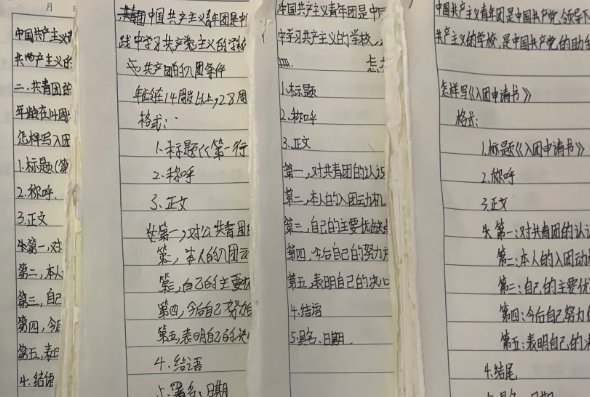 月 日
中国共产主义青
共产主义的
二、共青团的
年龄在14周
怎样写入团
1.标题(第
2.称呼.
3.正文
第一,对
第二,本人
第三,自己
第四,今后
第五,表
4.结语
中国共产主义青年团是中
践中学习共产主义的学校
共产团的入团条件
年龄在14周岁以上,28周
格式:
1.标题《第一行
2.称呼
3.正文
第一,对共青团
第二,本人的入团动
第三,自己的主要优
第四,今后自己努力
第五,表明自己的决心
4.结语
5.署名、日期
中国共产主义青年团是中
中学习共产主义的学校,
四. 怎
1.标题
2.称呼
3.正文
第一,对共青团的认识
第二,本人的入团动机
第三,自己的主要优缺点
第四,今后自己的努力方
第五,表明自己的决心
4.结语
5.具名、日期.
中国共产主义青年团是中国共产党领导下
共产主义的学校,是中国共产党的助
怎样写《入团申请书》
格式:
1.标题《入团申请书》
2.称呼
3.正文
第一:对共青团的认识
第二:本人的入团动
第三:自己的主要优
第四:今后自己努力
第五:表明自己的决
4.结尾
5.具名、日期